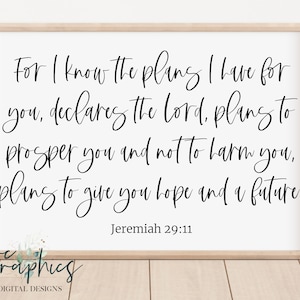 For I know the plans I have for
you, declares the Lord, plans to
prosper you and not to harm you,
plans to give you hope and a future
Jeremiah 29:11
graphics
DIGITAL DESIGNS